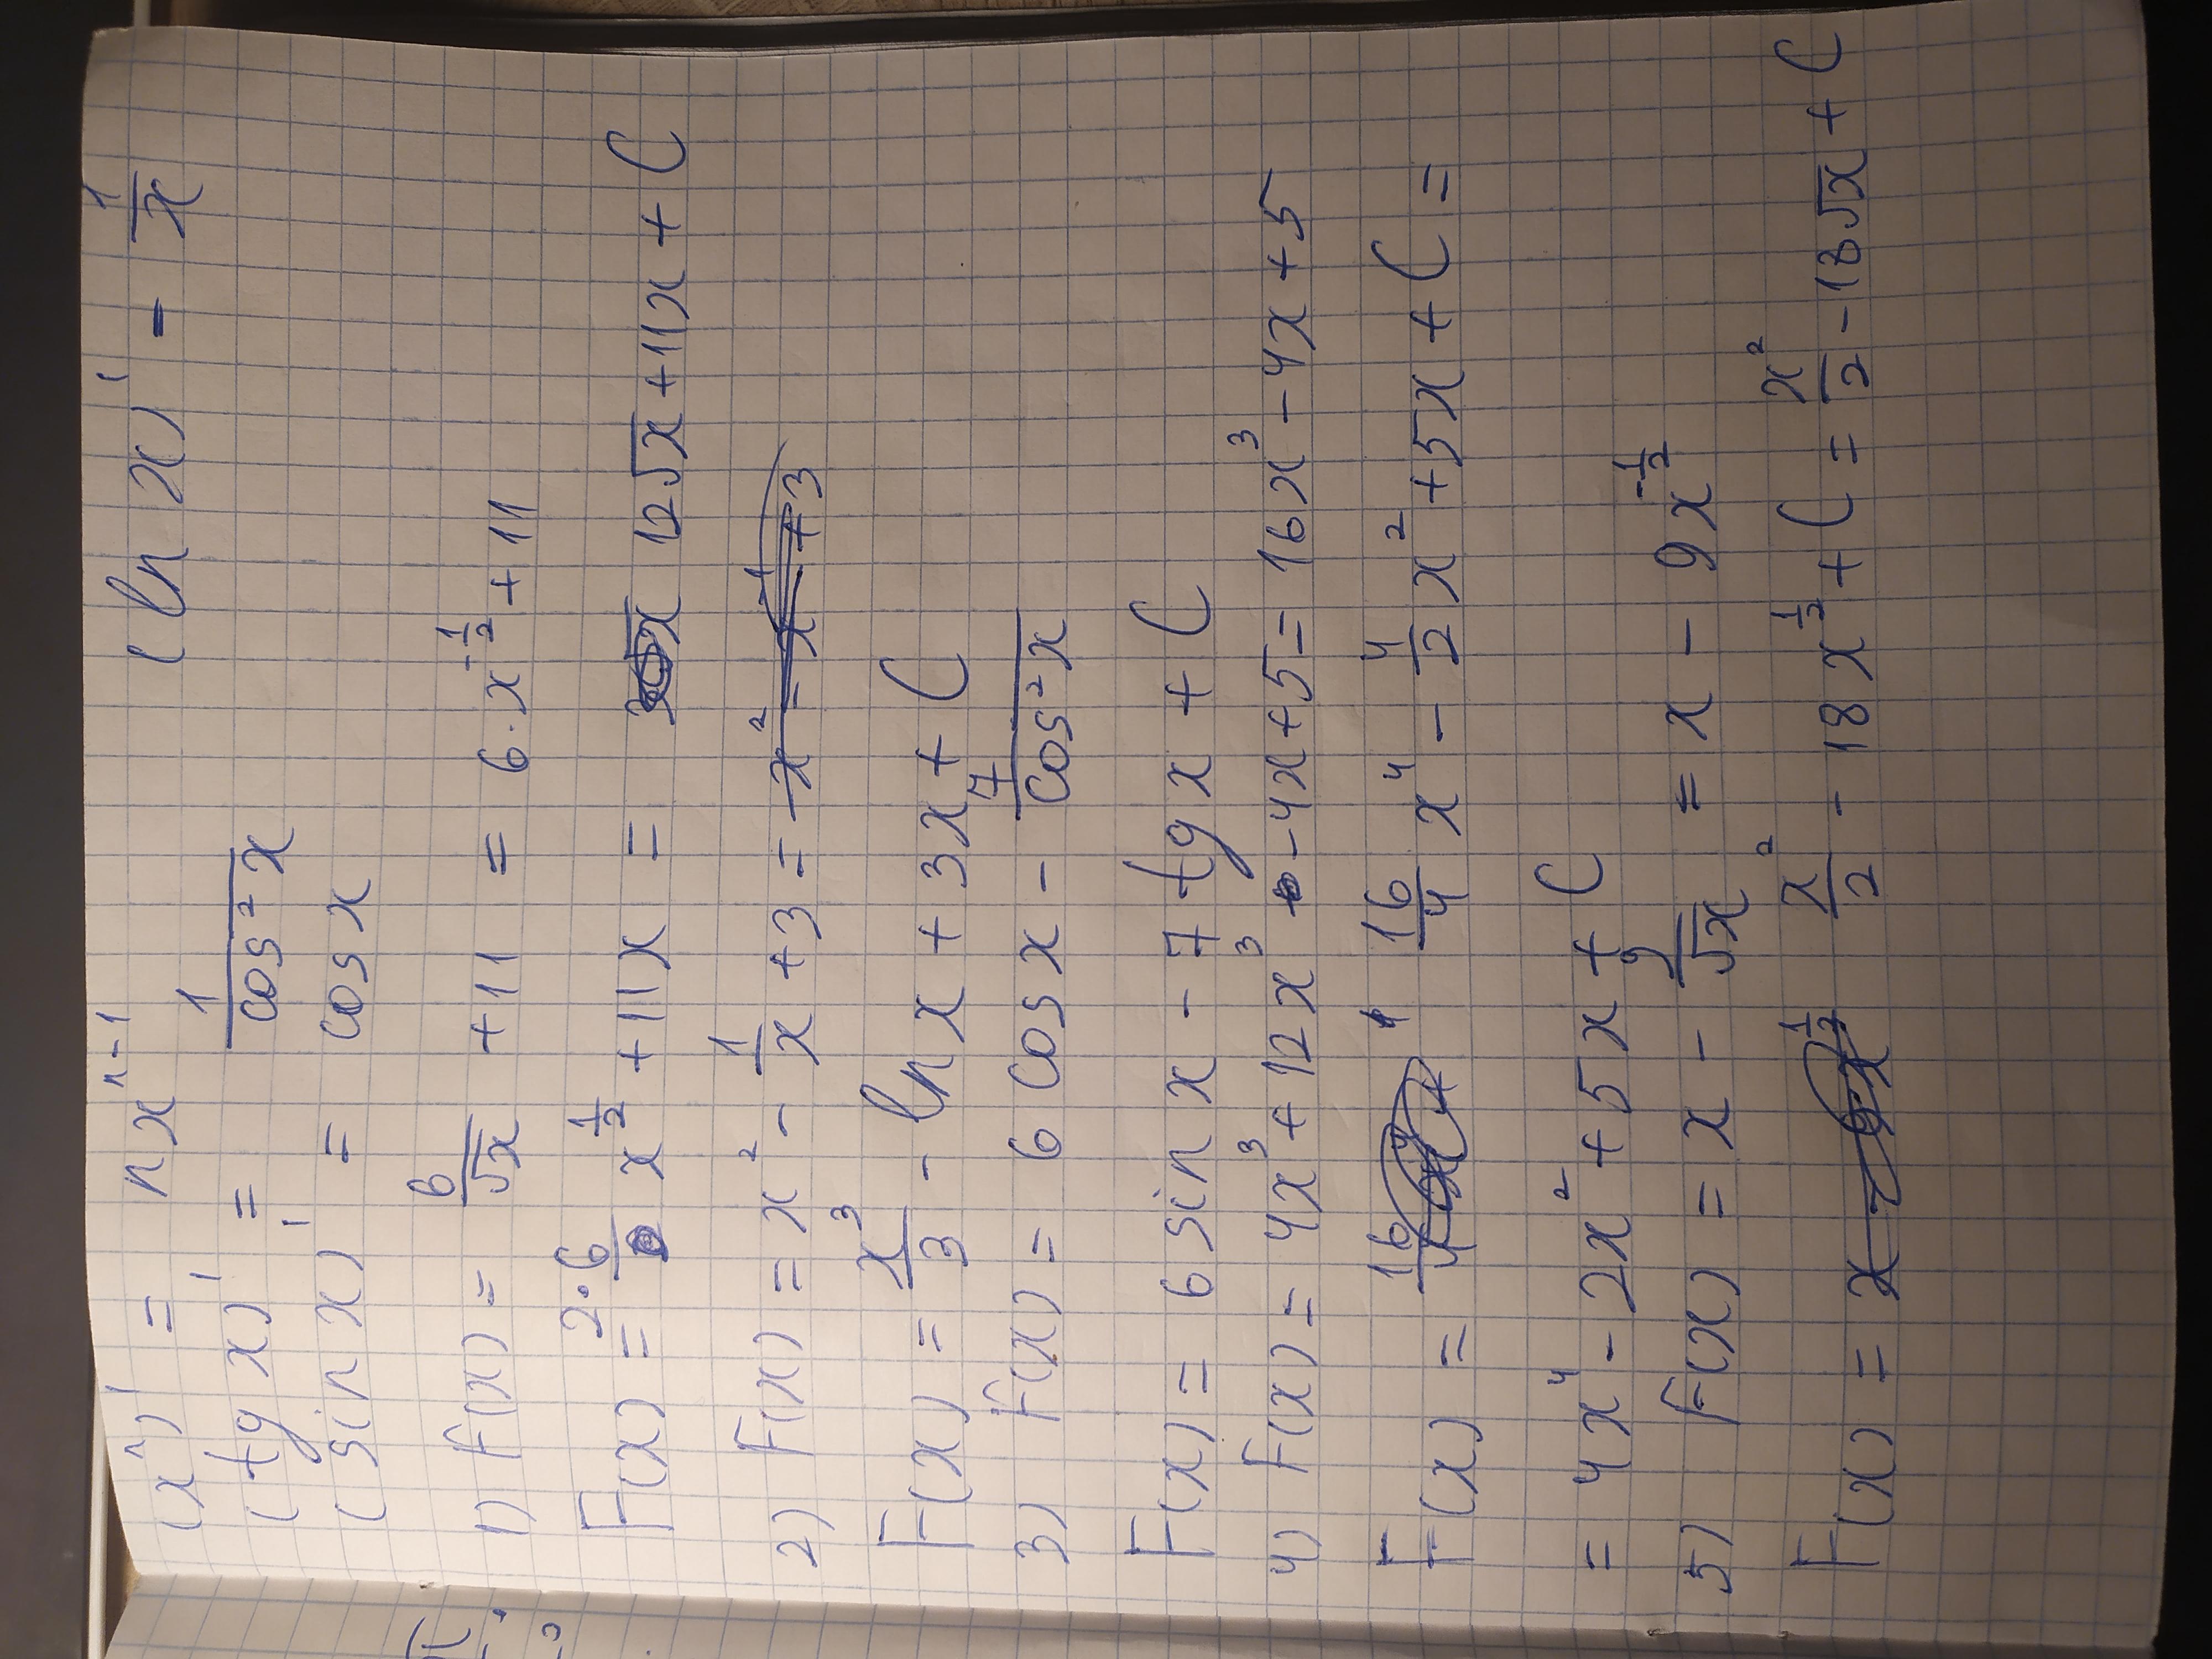 (xⁿ)' = nxⁿ⁻¹ (ln x)' = 1/x
(tg x)' = 1/cos²x
(sin x)' = cos x
1) f(x) = 6/√x + 11 = 6·x^(-1/2) + 11
F(x) = 2·6 x^(1/2) + 11x = 12√x + 11x + C
2) f(x) = x² - 1/x + 3 = x² - x⁻¹ + 3
F(x) = x³/3 - ln x + 3x + C
3) f(x) = 6 cos x - 7/cos²x
F(x) = 6 sin x - 7 tg x + C
4) f(x) = 4x³ + 12x³ - 4x + 5 = 16x³ - 4x + 5
F(x) = 16/4 x⁴ - 4/2 x² + 5x + C =
= 4x⁴ - 2x² + 5x + C
5) f(x) = x - 9/√x = x - 9x^(-1/2)
F(x) = x²/2 - 18x^(1/2) + C = x²/2 - 18√x + C